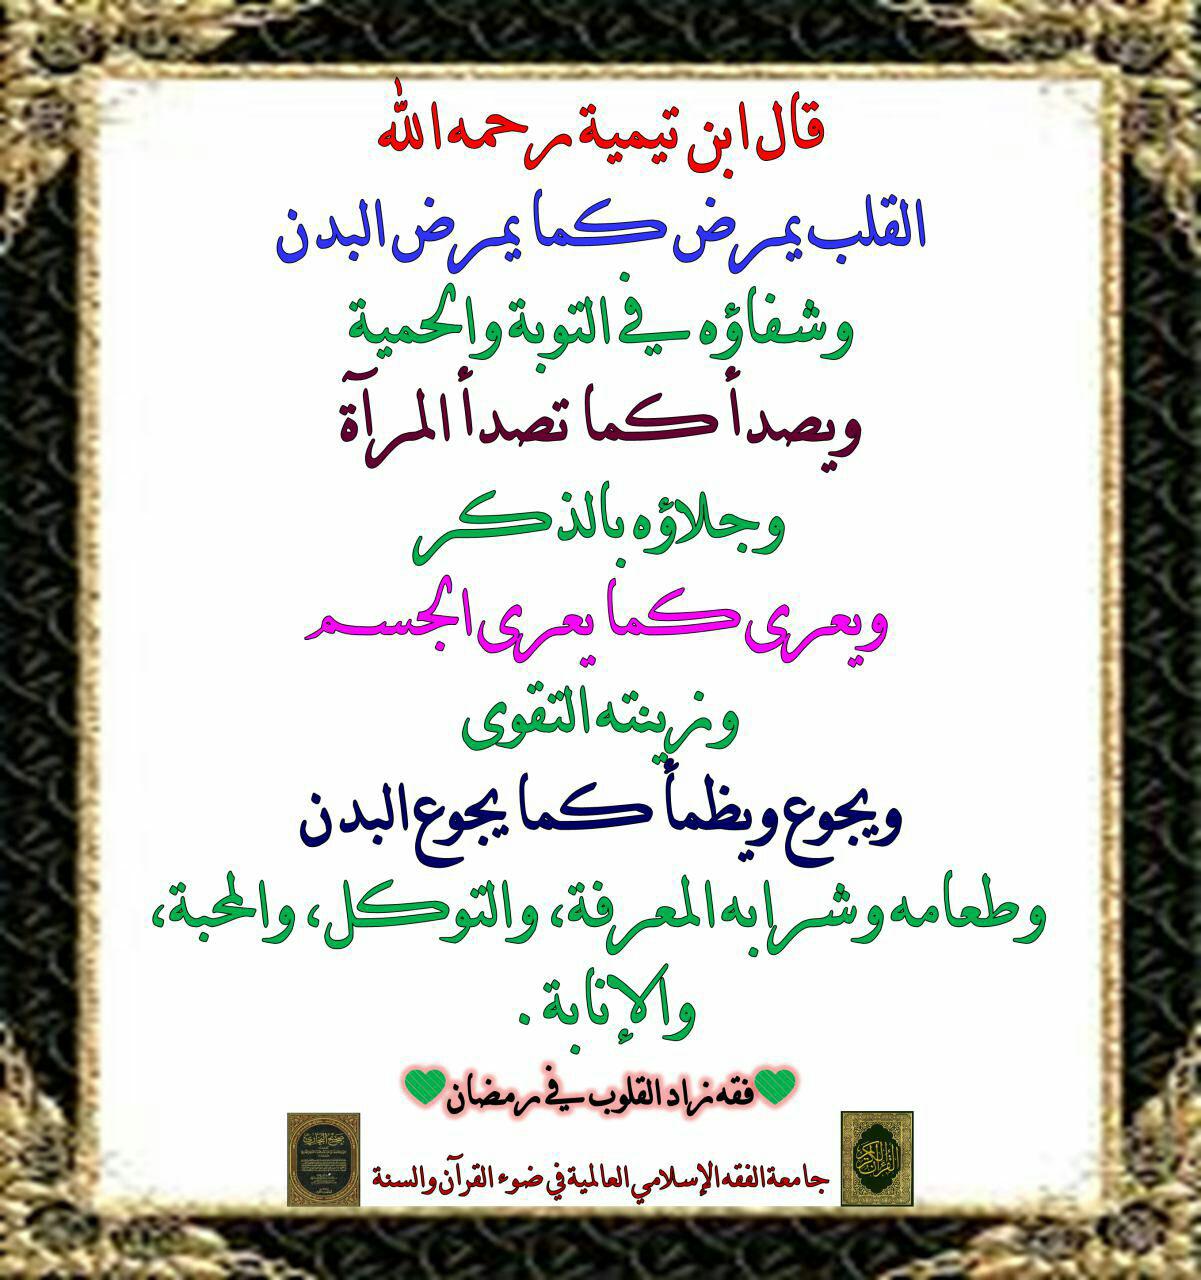 قال ابن تيمية رحمه الله
القلب يمرض كما يمرض البدن
وشفاؤه في التوبة والحمية
ويصدأ كما تصدأ المرآة
وجلاؤه بالذكر
ويعرى كما يعرى الجسم
وزينته التقوى
ويجوع ويظمأ كما يجوع البدن
وطعامه وشرابه المعرفة، والتوكل، والمحبة،
والإنابة .
💚فقه زاد القلوب في رمضان💚
جامعة الفقه الإسلامي العالمية في ضوء القرآن والسنة
القرآن الكريم
صحيح البخاري